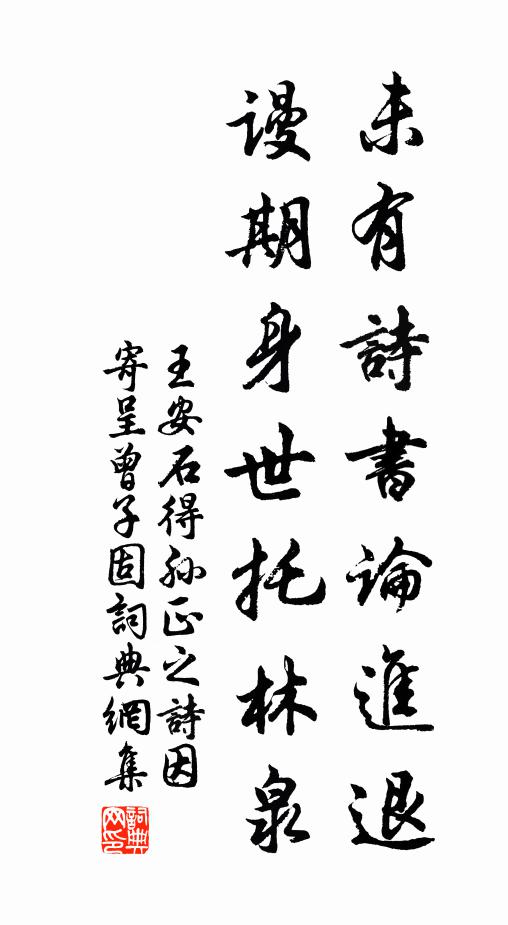 未有詩書論進退
謾期身世托林泉
王安石得孙正之詩因
寄呈曾子固詞典網集
詞典网印